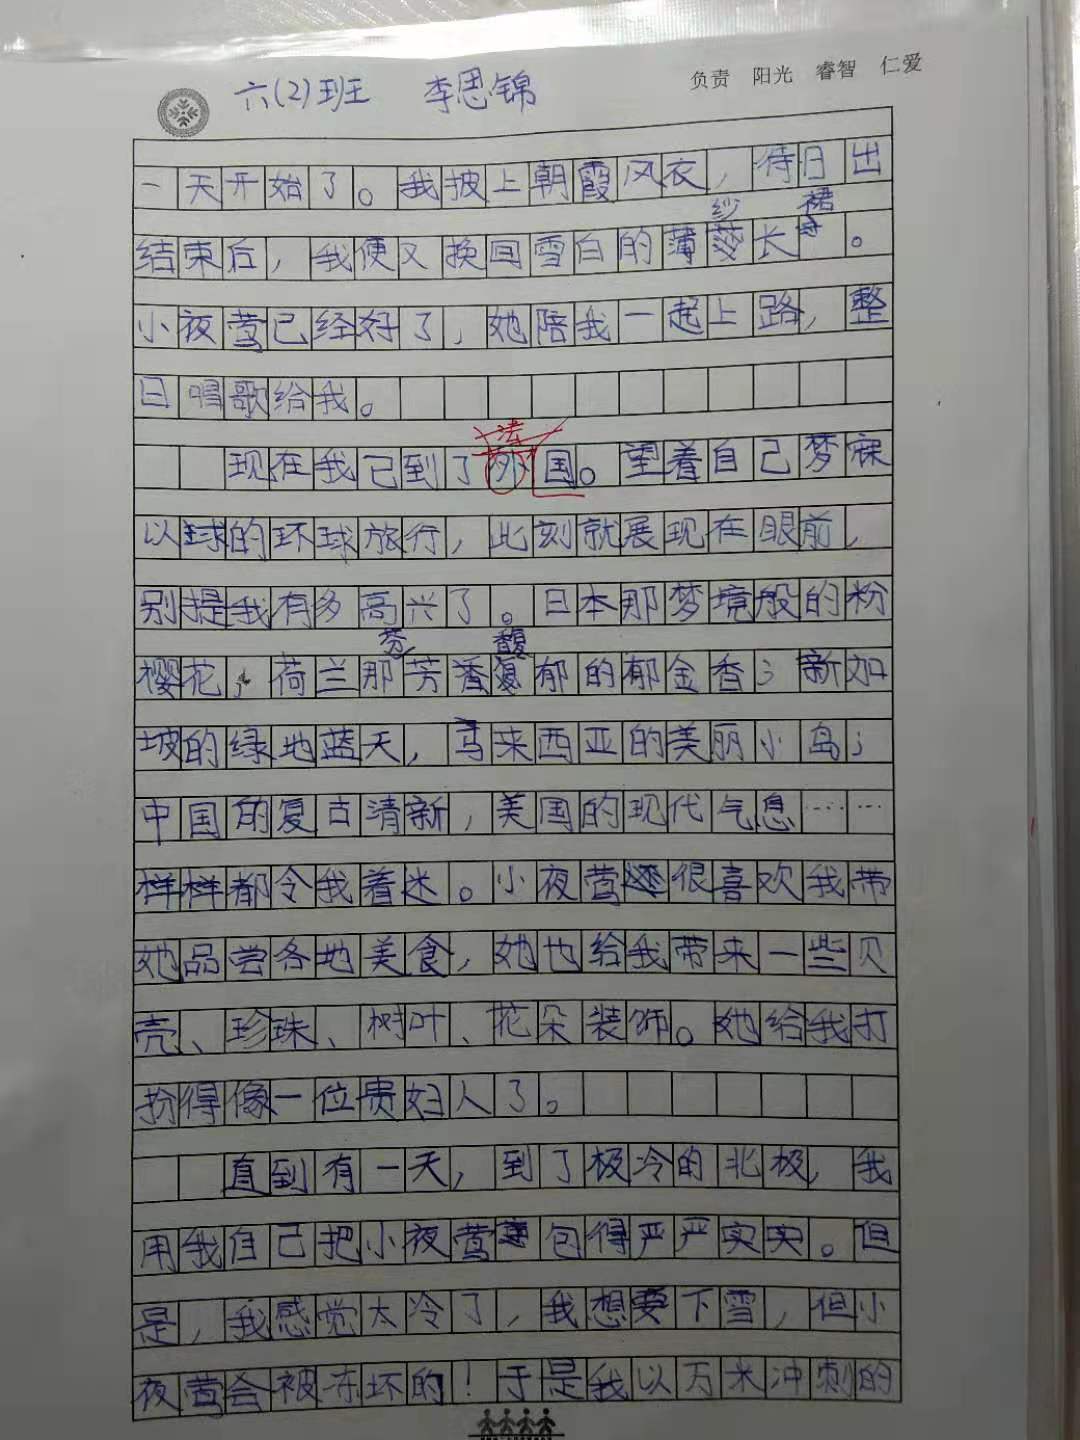 负责 阳光 睿智 仁爱
六(2)班 李思锦
一天开始了。我披上朝霞风衣，待日出
纱 裙
结束后，我便又换回雪白的薄长。
小夜莺已经好了，她陪我一起上路，整
日唱歌给我。
法
现在我已到了外国。望着自己梦寐
以球的环球旅行，此刻就展现在眼前，
别提我有多高兴了。日本那梦境般的粉
芬 馥
樱花；荷兰那芳香郁的郁金香；新如
坡的绿地蓝天，马来西亚的美丽小岛；
中国的复古清新，美国的现代气息……
样样都令我着迷。小夜莺很喜欢我带
她品尝各地美食，她也给我带来一些贝
壳、珍珠、树叶、花朵装饰。她给我打
扮得像一位贵妇人了。
直到有一天，到了极冷的北极，我
用我自己把小夜莺包得严严实实。但
是，我感觉太冷了，我想要下雪，但小
夜莺会被冻坏的！于是我以万米冲刺的